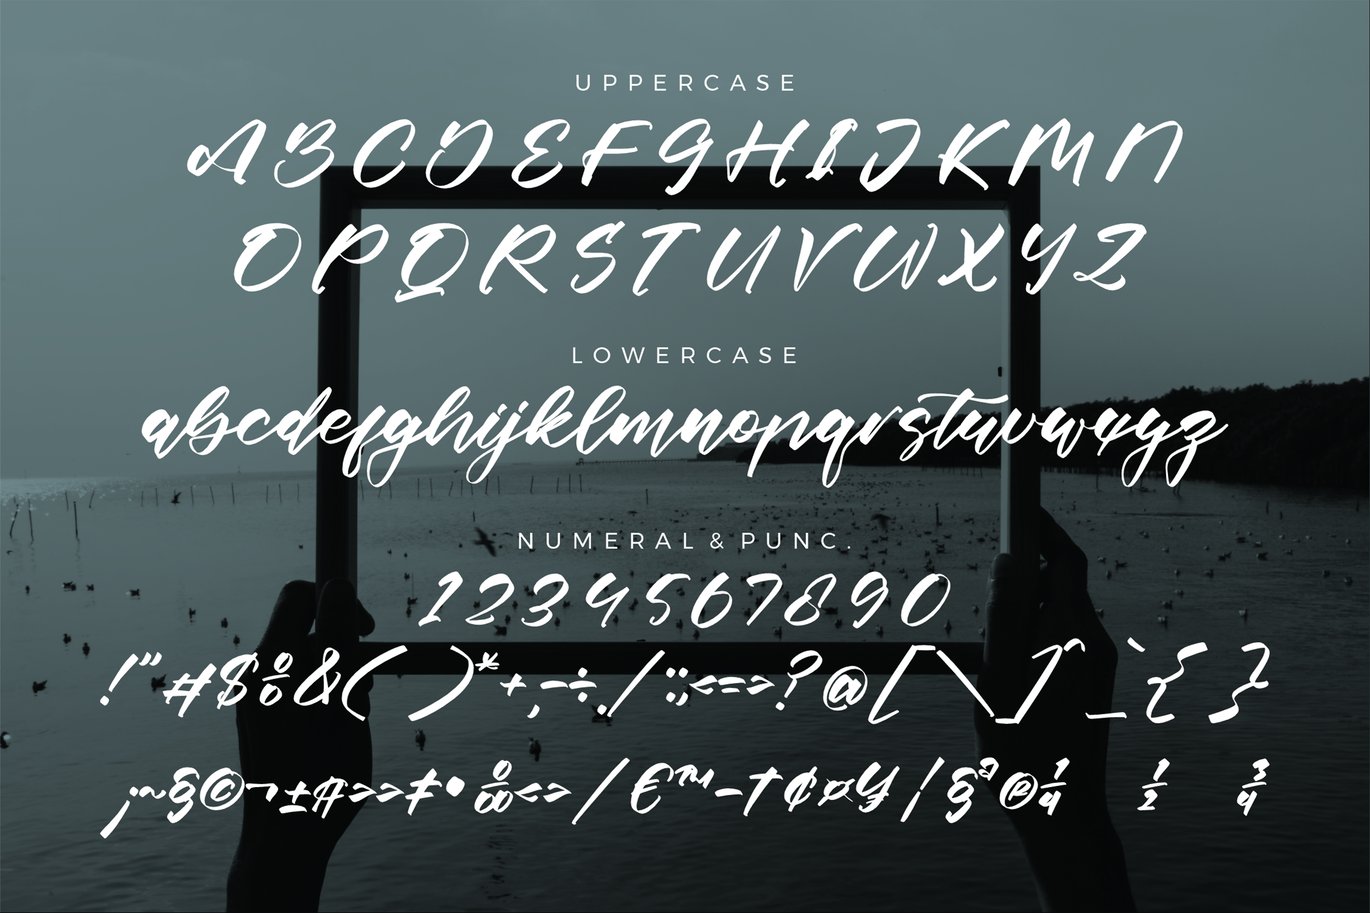 UPPERCASE
ABCDEFGHIJKMN
OPQRSTUVWXYZ
LOWERCASE
abcdefghijklmnopqrstuvwxyz
NUMERAL & PUNC.
1234567890
!"#$%&( )*+,-÷./:;<=>?@[\]^_`{ }
¡~§©¬±¶>>≠•‰<>/€™–†¢¤¥|§ª®¼ ½ ¾